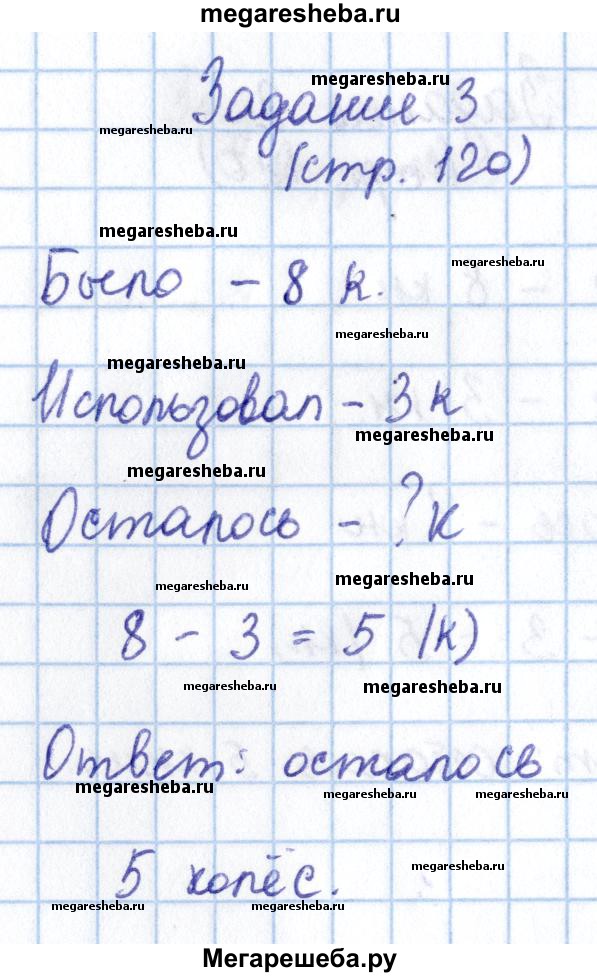 megaresheba.ru
Задание 3
megaresheba.ru
megaresheba.ru
(стр. 120)
megaresheba.ru
Было - 8 к.
megaresheba.ru
megaresheba.ru
megaresheba.ru
Использовал - 3 к
megaresheba.ru
megaresheba.ru
Осталось - ? к
megaresheba.ru
megaresheba.ru
8 - 3 = 5 (к)
megaresheba.ru
megaresheba.ru
Ответ: осталось
megaresheba.ru
megaresheba.ru
megaresheba.ru
5 колёс.
megaresheba.ru
megaresheba.ru
megaresheba.ru
Мегарешеба.ру